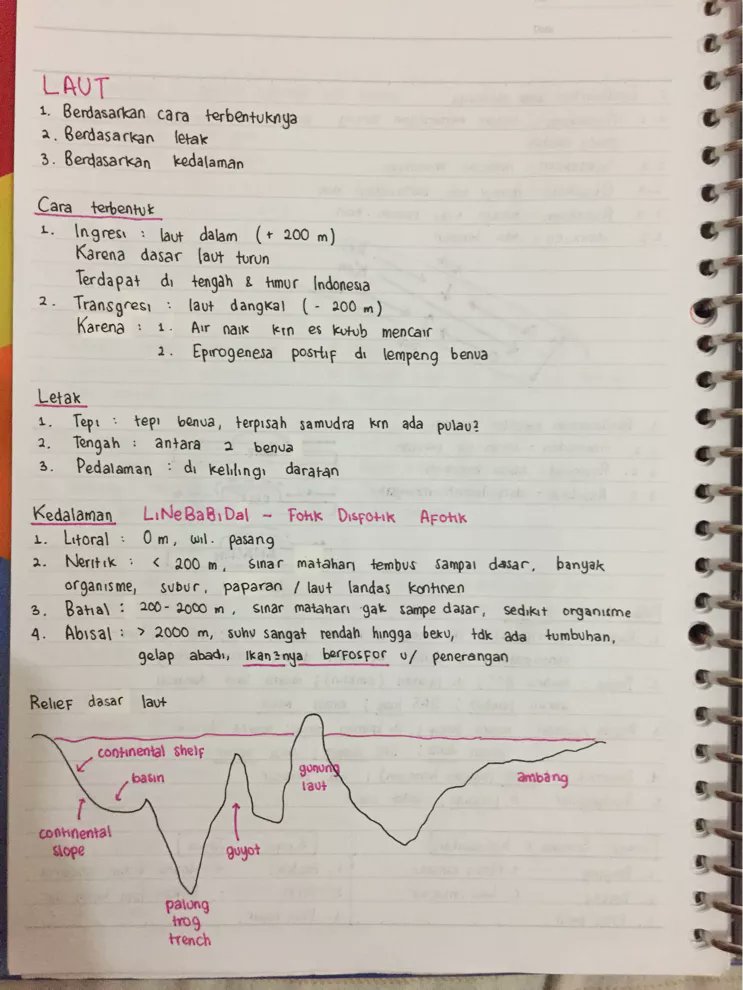 LAUT
1. Berdasarkan cara terbentuknya
2. Berdasarkan letak
3. Berdasarkan kedalaman
Cara terbentuk
1. Ingresi : laut dalam (+ 200 m)
Karena dasar laut turun
Terdapat di tengah & timur Indonesia
2. Transgresi : laut dangkal (- 200 m)
Karena : 1. Air naik krn es kutub mencair
2. Epirogenesa positif di lempeng benua
Letak
1. Tepi : tepi benua, terpisah samudra krn ada pulau2
2. Tengah : antara 2 benua
3. Pedalaman : di kelilingi daratan
Kedalaman LiNeBaBiDal - Fotik Disfotik Afotik
1. Litoral : 0 m, wil. pasang
2. Neritik : < 200 m, sinar matahari tembus sampai dasar, banyak
organisme, subur, paparan / laut landas kontinen
3. Batial : 200 - 2000 m, sinar matahari gak sampe dasar, sedikit organisme
4. Abisal : > 2000 m, suhu sangat rendah hingga beku, tdk ada tumbuhan,
gelap abadi, ikan2nya berfosfor u/ penerangan
Relief dasar laut
continental shelf
basin
continental
slope
palung
trog
trench
guyot
gunung
laut
ambang